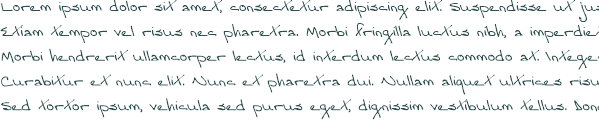 Lorem ipsum dolor sit amet, consectetur adipiscing elit. Suspendisse ut
Etiam tempor vel risus nec pharetra. Morbi fringilla luctus nibh, a
Morbi hendrerit ullamcorper lectus, id interdum lectus commodo at.
Curabitur et nunc elit. Nunc et pharetra dui. Nullam aliquet ultrices
Sed tortor ipsum, vehicula sed purus eget, dignissim vestibulum tellus.